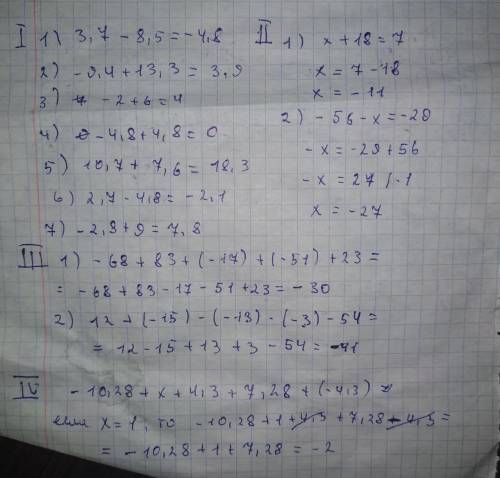 I 1) 3,7 - 8,5 = -4,8
2) -9,4 + 13,3 = 3,9
3) -2 + 6 = 4
4) -4,8 + 4,8 = 0
5) 10,7 + 7,6 = 18,3
6) 2,7 - 4,8 = -2,1
7) -2,9 + 9 = 7,8
II 1) x + 18 = 7
x = 7 - 18
x = -11
2) -56 - x = -29
-x = -29 + 56
-x = 27 / -1
x = -27
III 1) -68 + 83 + (-17) + (-51) + 23 =
= -68 + 83 - 17 - 51 + 23 = -30
2) 12 + (-15) - (-13) - (-3) - 54 =
= 12 - 15 + 13 + 3 - 54 = -41
IV -10,28 + x + 4,3 + 7,28 + (-4,3) =
если x = 1, то -10,28 + 1 + 4,3 + 7,28 - 4,3 =
= -10,28 + 1 + 7,28 = -2